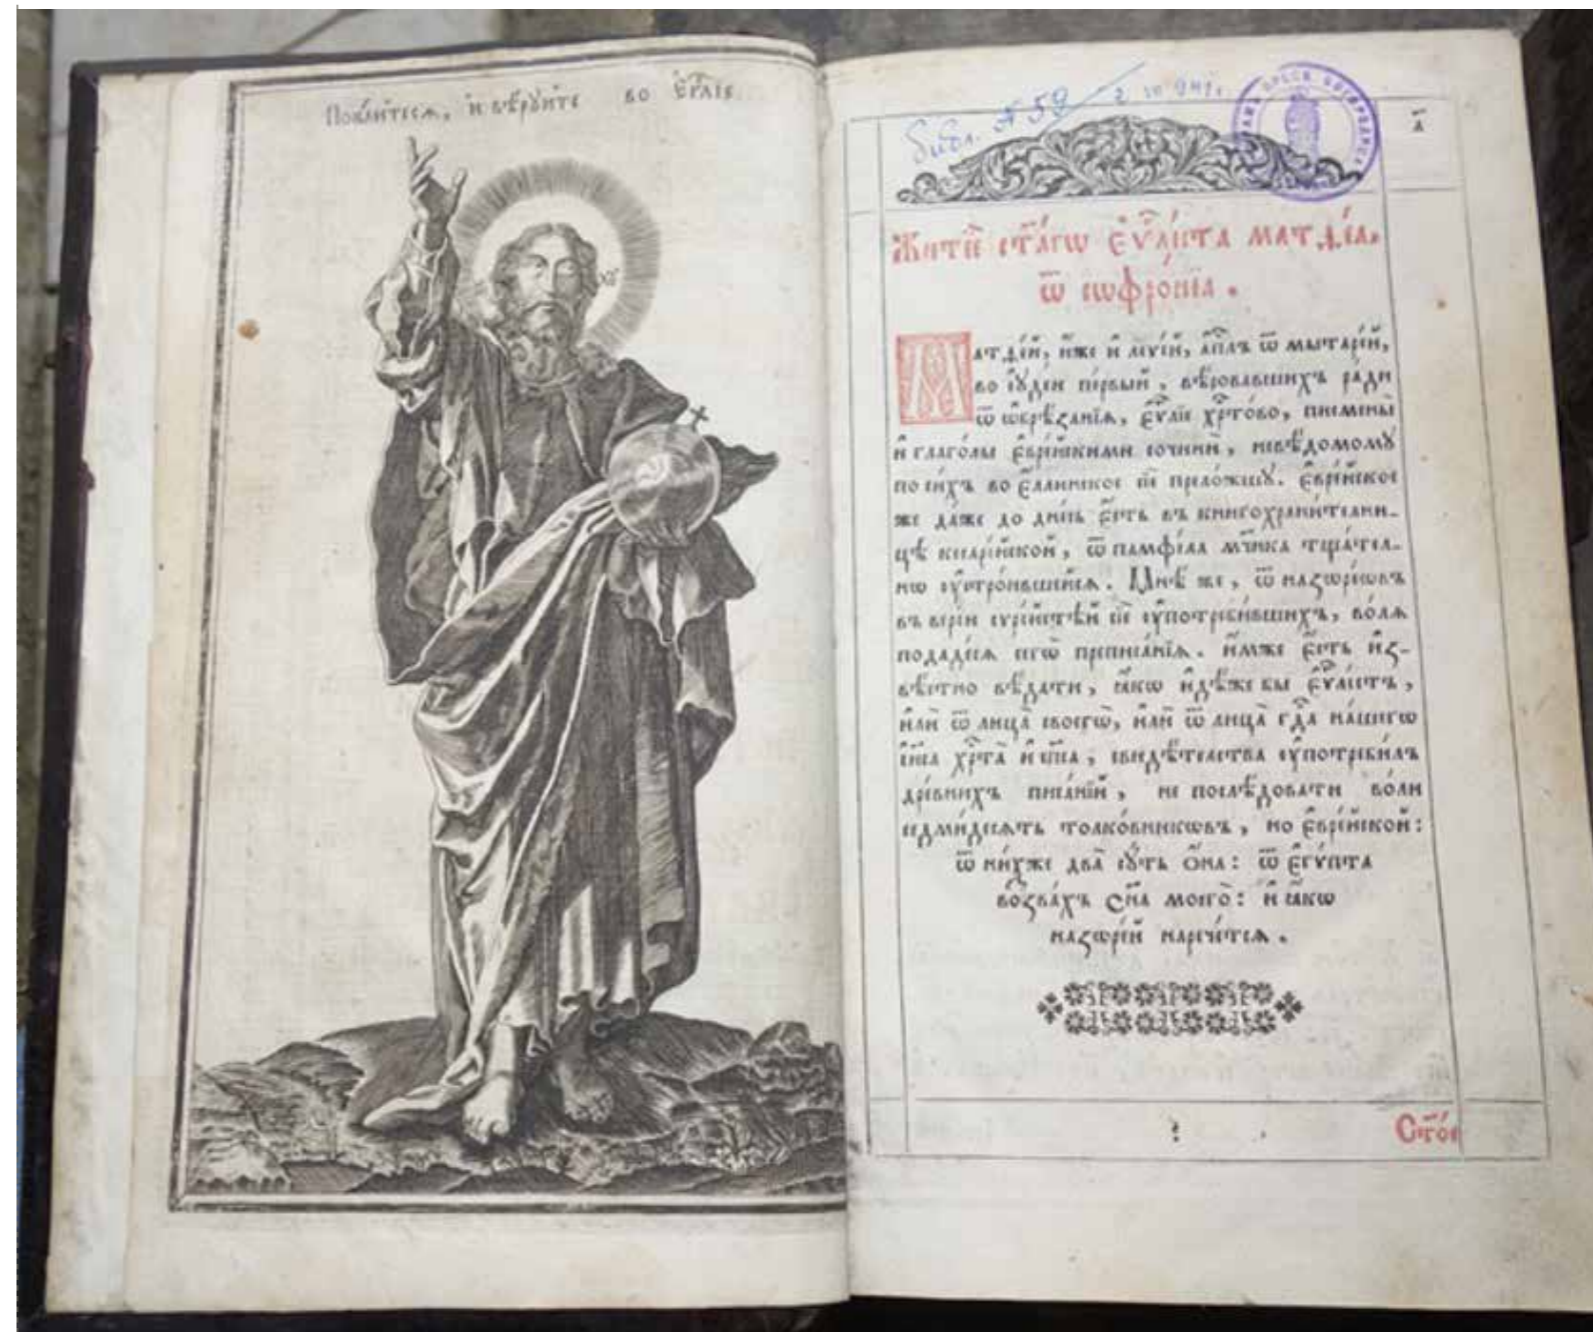 Пока́йтеся, и҆ вѣ́рꙋйте во Е҆ѵⷢ҇лїе
библ. № 59
а҃
Житїѐ ст҃а́гѡ Е҆ѵⷢ҇лі́ста матѳе́а,
ѿ сѡфро́нїа .
Матѳе́й, и҆́же и҆ леѵі́й, а҆пⷭ҇лъ ѿ мытаре́й,
во і҆ꙋде́и пе́рвый , вѣ́ровавшихъ ра́ди
ѿ ѡ҆брѣ́занїѧ, Е҆ѵⷢ҇лїе хрⷭ҇то́во, писмены̀
и҆ глаго́лы Е҆вре́йскими сочинѝ , невѣ́домомꙋ
по си́хъ во Е҆́ллинское сїѐ прело́жшꙋ. Е҆вре́йское
же да́же до дне́сь Е҆́сть въ книгохрани́телни-
цѣ кесарі́йской , ѿ памфі́ла мч҃нка тща́тел-
нѡ ᲂу҆стро́ившейсѧ . Мнѣ́ же , ѿ назѡре́ѡвъ
въ вері́и сѷрі́йстѣй сїѐ ᲂу҆потреби́вшихъ, во́лѧ
подаде́сѧ сегѡ̀ преписа́нїѧ . и҆́мже Е҆́сть и҆з-
вѣ́стно вѣ́дати , ꙗ҆́кѡ и҆дѣ́же бы Е҆ѵⷢ҇лі́стъ ,
и҆лѝ ѿ лица̀ своегѡ̀, и҆лѝ ѿ лица̀ гдⷭ҇а на́шегѡ
і҆и҃са хрⷭ҇та̀ и҆ сп҃са , свидѣ́телства ᲂу҆потреби́лъ
дре́внихъ писа́нїй , не послѣ́довати во́ли
седми́десѧть толко́вникѡвъ , но Е҆вре́йской :
ѿ ни́хже два̀ сꙋ́ть Ѻ҆́на : ѿ Е҆гѵ́пта
воззва́хъ Сн҃а моего̀ : и҆ ꙗ҆́кѡ
назѡре́й нарече́тсѧ .
Ст҃о́е